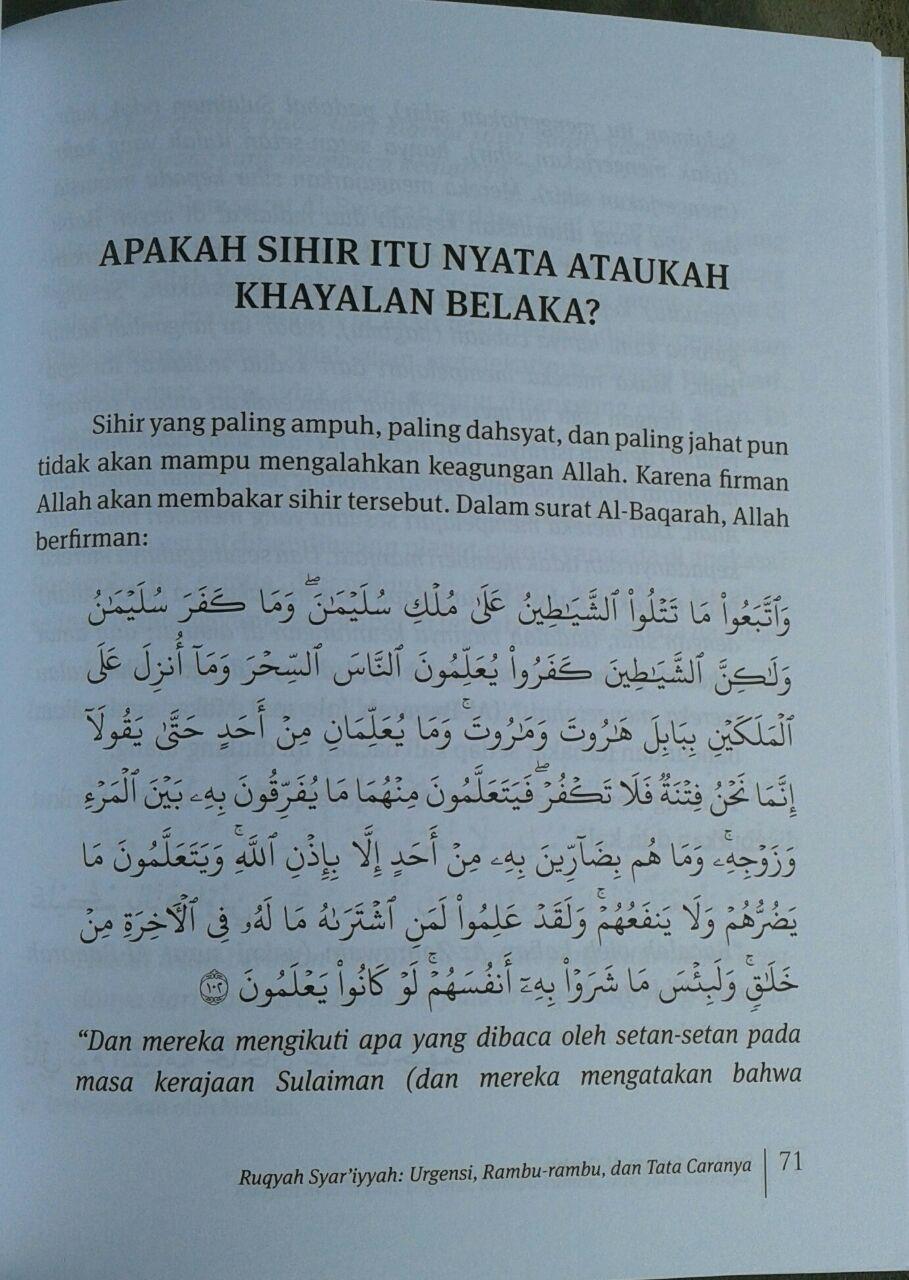 APAKAH SIHIR ITU NYATA ATAUKAH
KHAYALAN BELAKA?
Sihir yang paling ampuh, paling dahsyat, dan paling jahat pun
tidak akan mampu mengalahkan keagungan Allah. Karena firman
Allah akan membakar sihir tersebut. Dalam surat Al-Baqarah, Allah
berfirman:
وَٱتَّبَعُوا۟ مَا تَتْلُوا۟ ٱلشَّيَـٰطِينُ عَلَىٰ مُلْكِ سُلَيْمَـٰنَ ۖ وَمَا كَفَرَ سُلَيْمَـٰنُ
وَلَـٰكِنَّ ٱلشَّيَـٰطِينَ كَفَرُوا۟ يُعَلِّمُونَ ٱلنَّاسَ ٱلسِّحْرَ وَمَآ أُنزِلَ عَلَى
ٱلْمَلَكَيْنِ بِبَابِلَ هَـٰرُوتَ وَمَـٰرُوتَ ۚ وَمَا يُعَلِّمَانِ مِنْ أَحَدٍ حَتَّىٰ يَقُولَآ
إِنَّمَا نَحْنُ فِتْنَةٌ فَلَا تَكْفُرْ ۖ فَيَتَعَلَّمُونَ مِنْهُمَا مَا يُفَرِّقُونَ بِهِۦ بَيْنَ ٱلْمَرْءِ
وَزَوْجِهِۦ ۚ وَمَا هُم بِضَآرِّينَ بِهِۦ مِنْ أَحَدٍ إِلَّا بِإِذْنِ ٱللَّهِ ۚ وَيَتَعَلَّمُونَ مَا
يَضُرُّهُمْ وَلَا يَنفَعُهُمْ ۚ وَلَقَدْ عَلِمُوا۟ لَمَنِ ٱشْتَرَىٰهُ مَا لَهُۥ فِى ٱلْـَٔاخِرَةِ مِنْ
خَلَـٰقٍ ۚ وَلَبِئْسَ مَا شَرَوْا۟ بِهِۦٓ أَنفُسَهُمْ ۚ لَوْ كَانُوا۟ يَعْلَمُونَ ١٠٢
“Dan mereka mengikuti apa yang dibaca oleh setan-setan pada
masa kerajaan Sulaiman (dan mereka mengatakan bahwa
Ruqyah Syar’iyyah: Urgensi, Rambu-rambu, dan Tata Caranya | 71